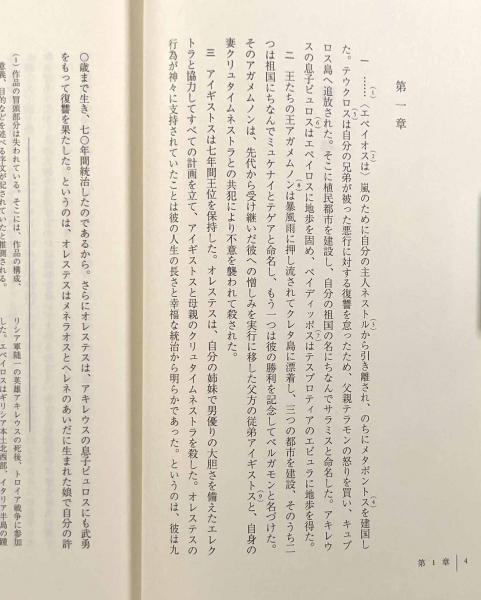 第一章
一 ……〈エペイオスは〉嵐のために自分の主人ネストルから引き離され、のちにメタポントスを建国し
た。テウクロスは自分の兄弟が被った悪行に対する復讐を怠ったため、父親テラモンの怒りを買い、キュプ
ロス島へ追放された。そこに植民都市を建設し、自分の祖国の名にちなんでサラミスと命名した。アキレウ
スの息子ピュロスはエペイロスに地歩を固め、ペイディッポスはテスプロティアのエピュラに地歩を得た。
二 王たちの王アガメムノンは暴風雨に押し流されてクレタ島に漂着し、三つの都市を建設、そのうち二
つは祖国にちなんでミュケナイとテゲアと命名し、もう一つは彼の勝利を記念してペルガモンと名づけた。
そのアガメムノンは、先代から受け継いだ彼への憎しみを実行に移した父方の従弟アイギストスと、自身の
妻クリュタイムネストラとの共犯により不意を襲われて殺された。
三 アイギストスは七年間王位を保持した。オレステスは、自分の姉妹で男優りの大胆さを備えたエレク
トラと協力してすべての計画を立て、アイギストスと母親のクリュタイムネストラを殺した。オレステスの
行為が神々に支持されていたことは彼の人生の長さと幸福な統治から明らかであった。というのは、彼は九
〇歳まで生き、七〇年間統治したのであるから。さらにオレステスは、アキレウスの息子ピュロスにも武勇
をもって復讐を果たした。というのは、オレステスはメネラオスとヘレネのあいだに生まれた娘で自分の許
(1) 作品の冒頭部分は失われている。そこには、作品の構成、
意義、目的などを述べる序文が記されていたと推測される。
リシア軍随一の英雄アキレウスの死後、トロイア戦争に参加
した。エペイロスはギリシア本土北西部、イタリア半島の踵
第1章
4